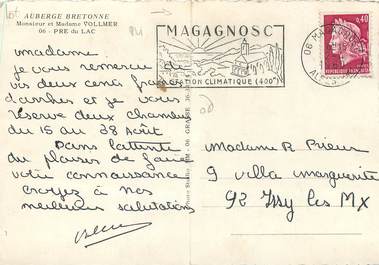 AUBERGE BRETONNE
Monsieur et Madame VOLLMER
06 - PRE du LAC
madame.
je vous remercie de
vos deux cent francs
d'arrhes et je vous
réserve deux chambres
du 15 au 28 Août
Dans l'attente
du plaisir de faire
votre connaissance
croyez à nos
meilleures salutations
MAGAGNOSC
STATION CLIMATIQUE (400m)
0,40
06 MAGAGNOSC
Madame R Prieur
9 villa marguerite
92 Issy les Mx